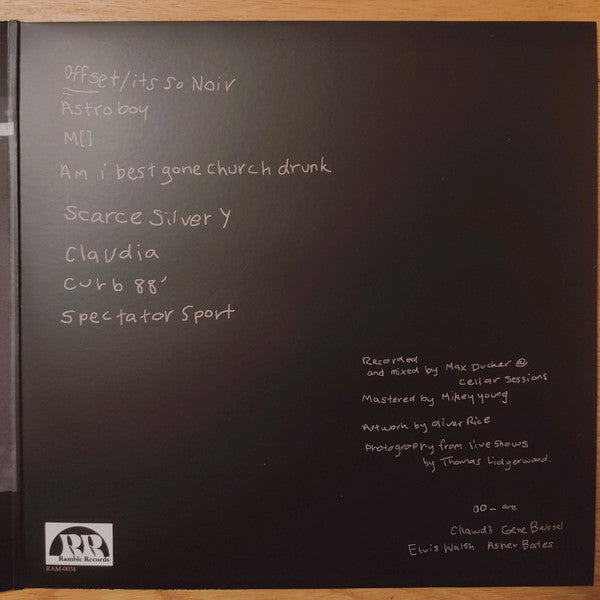 Offset/its so Noir
Astroboy
M[]
Am i best gone church drunk
Scarce Silver Y
Claudia
Curb 88'
Spectator Sport
Recorded
and mixed by Max Ducker @
Cellar Sessions
Mastered by Mikey Young
Artwork by Oliver Rice
Photography from live shows
by Thomas Lidgerwood.
00_ are
Gene Beissel
Elvis Walsh Asher Bates
RR
Ramble Records
RAM-0034